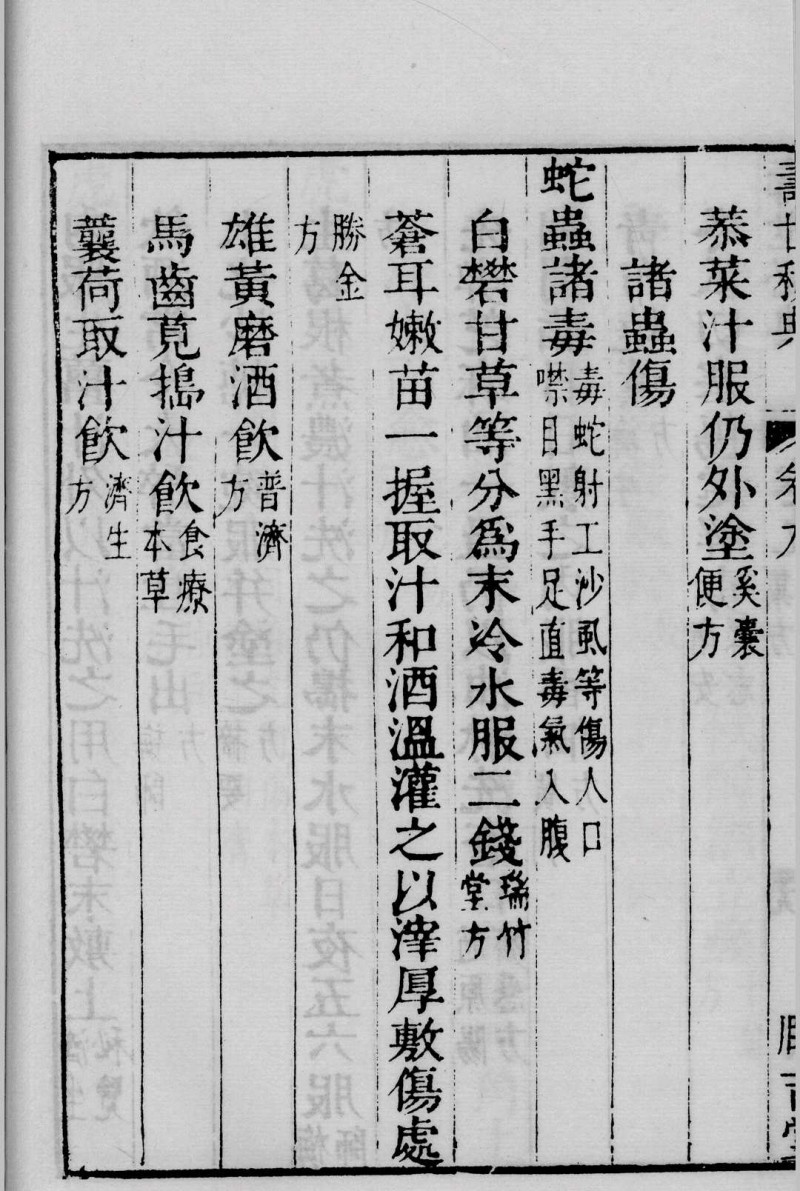 壽世秘典 卷九
菾菜汁服仍外塗奚囊便方
諸蟲傷
蛇蟲諸毒毒蛇射工沙虱等傷人口噤目黑手足直毒氣入腹
白礬甘草等分爲末冷水服二錢瑞竹堂方
蒼耳嫩苗一握取汁和酒溫灌之以滓厚敷傷處
勝金方
雄黃磨酒飲普濟方
馬齒莧搗汁飲食療本草
蘘荷取汁飲濟生方